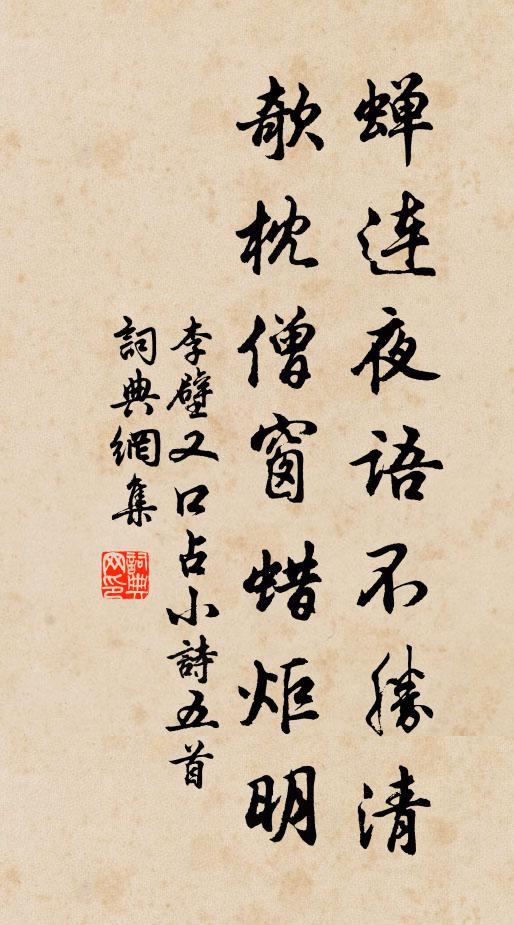 蝉連夜語不勝清
欹枕僧窗蜡炬明
李壁又口占小詩五首
詞典網集
詞典網印